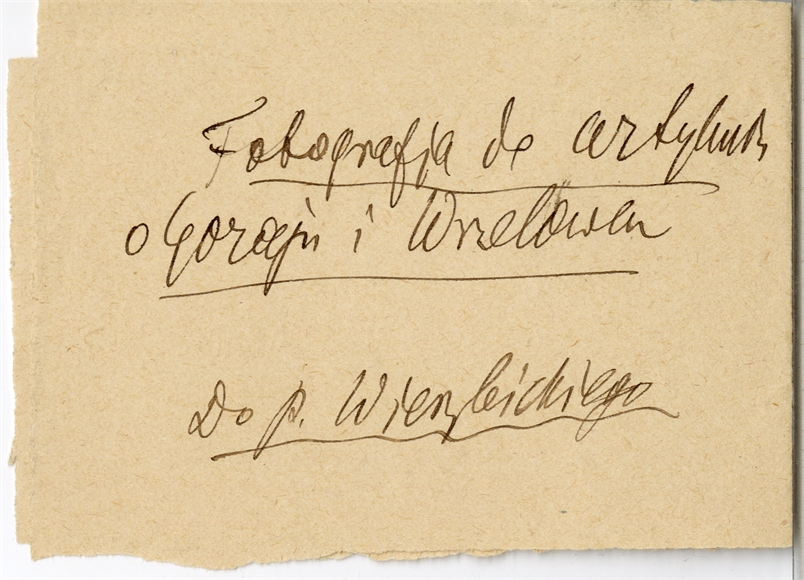 Fotografja do artykułu
o Goraju i Wrzelowcu
Do p. Wierzbickiego